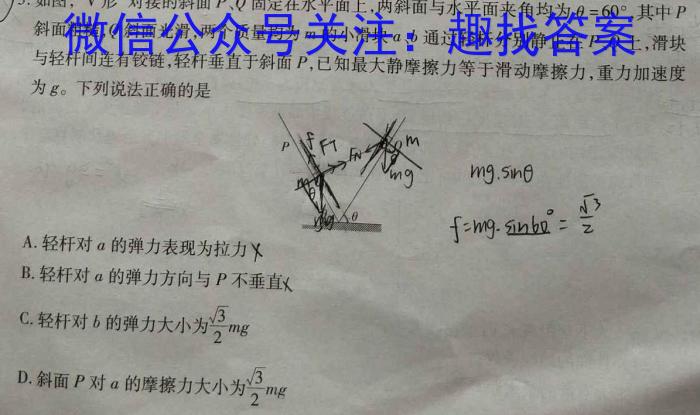 5.如图,“V形”对接的斜面P、Q固定在水平面上,两斜面与水平面夹角均为θ=60°,其中P
斜面
微信公众号关注：趣找答案
上,滑块
与轻杆间连有铰链,轻杆垂直于斜面P,已知最大静摩擦力等于滑动摩擦力,重力加速度
为g。下列说法正确的是
P
f
FT
FN
m
θ
mg
mg
θ
mg.sinθ
f=mg.sin60°=√3/2
A.轻杆对a的弹力表现为拉力 X
B.轻杆对a的弹力方向与P不垂直 X
C.轻杆对b的弹力大小为√3/2mg
D.斜面P对a的摩擦力大小为√3/2mg